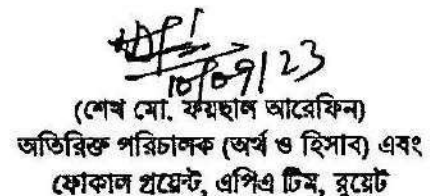 10/09/23
(শেখ মো. ফয়ছাল আরেফিন)
অতিরিক্ত পরিচালক (অর্থ ও হিসাব) এবং
ফোকাল পয়েন্ট, এপিএ টিম, বুয়েট